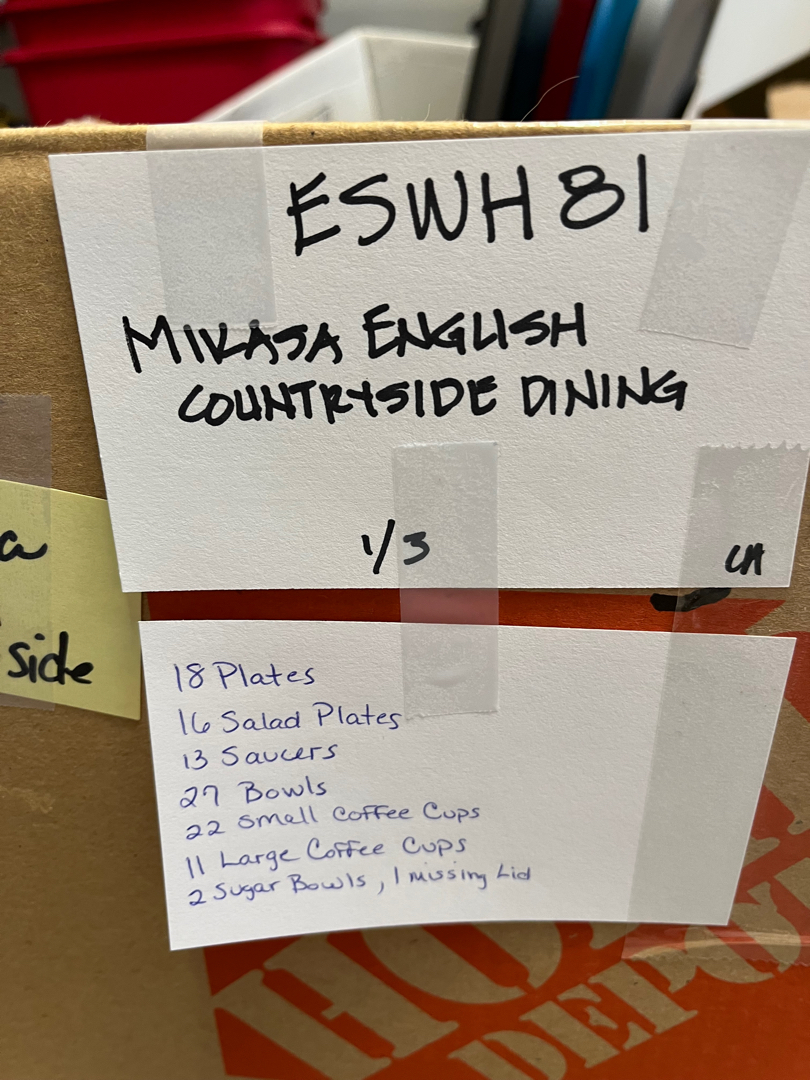 ESWH81
MIKASA ENGLISH
COUNTRYSIDE DINING
1/3
CA
a
side
18 Plates
16 Salad Plates
13 Saucers
27 Bowls
22 Small Coffee Cups
11 Large Coffee Cups
2 Sugar Bowls, 1 missing Lid
HO
DEPO